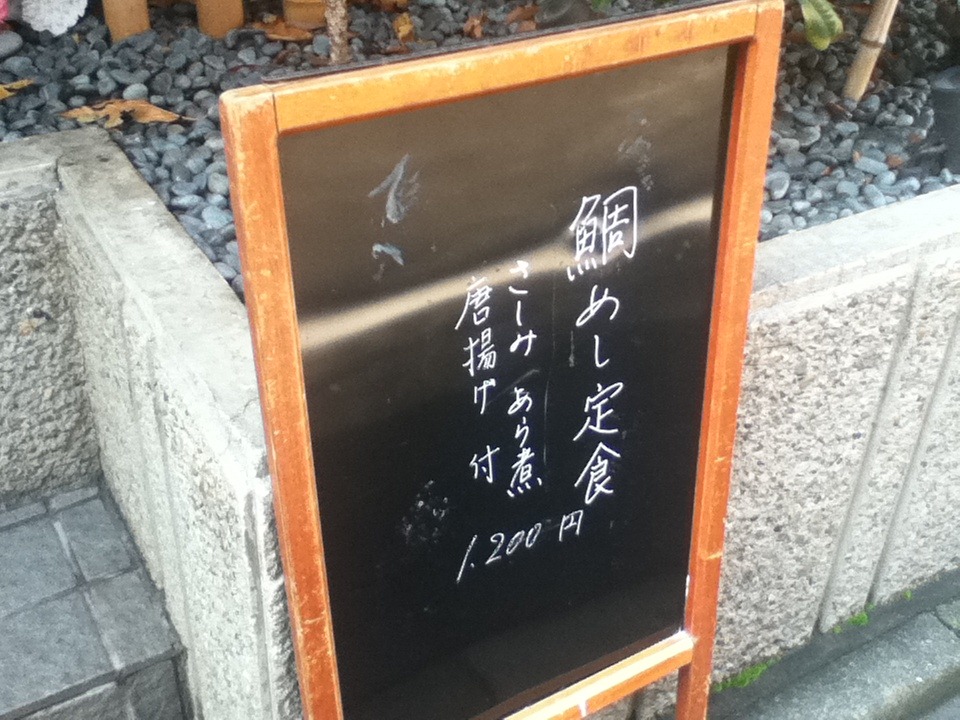 鯛めし定食
さしみ あら煮
唐揚げ 付
1.200円